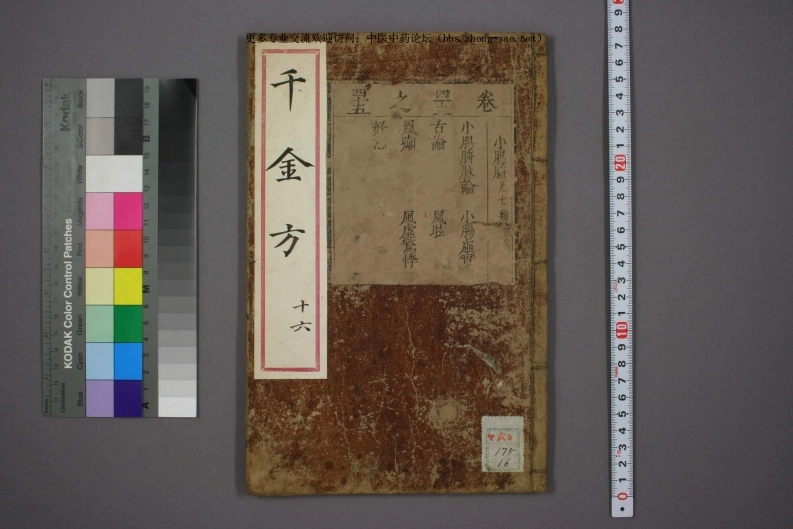 更多专业交流欢迎访问：中医中药论坛(bbs.zhong-yao.net)
千金方
十六
卷四十之四十五
小腸腑凡七類
小腸腑脉論 小腸虛實
舌論 風眩
風癲 風虛驚悸
好忘
175
16
KODAK Color Control Patches
Kodak
Blue
Cyan
Green
Yellow
Red
Magenta
White
3/Color
Black
A
M
B
0
10
20